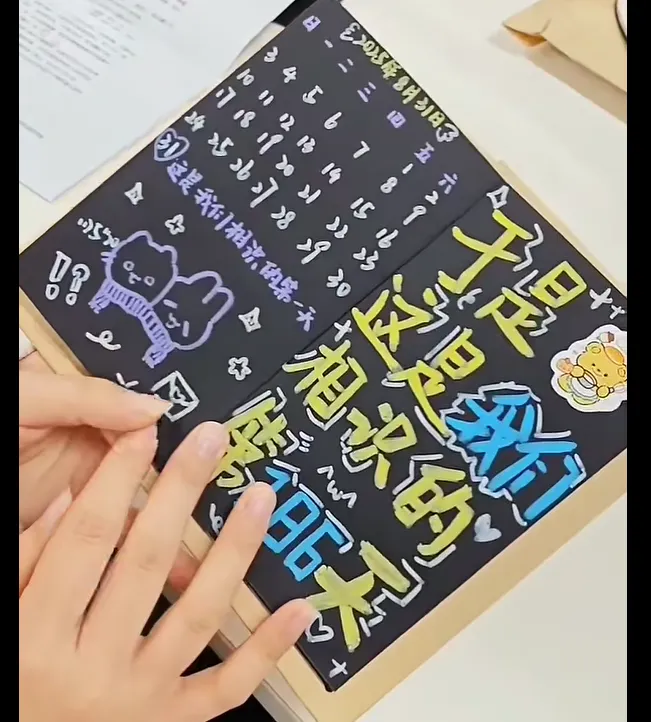 2023年8月31日
日 一 二 三 四 五 六
1 2
3 4 5 6 7 8 9
10 11 12 13 14 15 16
17 18 19 20 21 22 23
24 25 26 27 28 29 30
31 这是我们相识的第一天
于是
这是我们
相识的
第186天